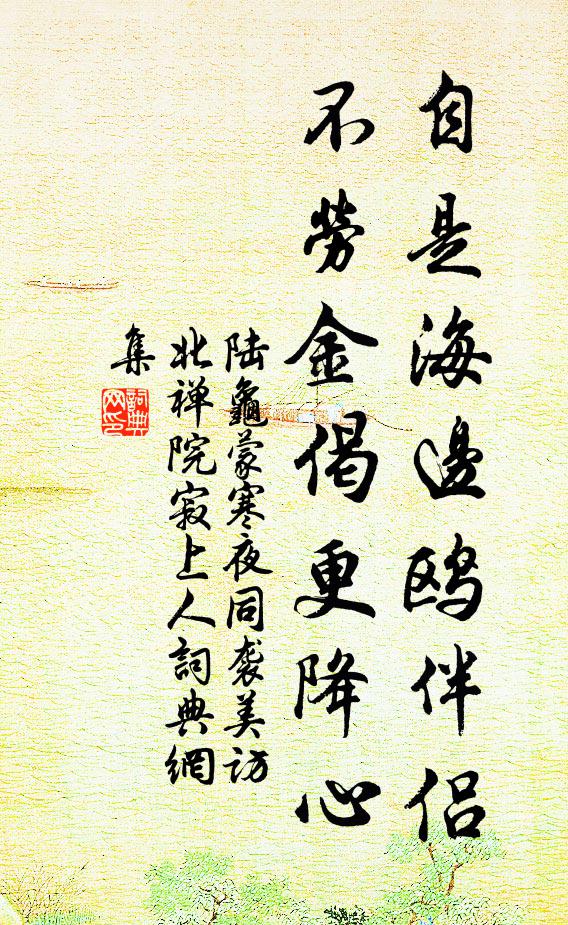 自是海邊鸥伴侣
不勞金偈更降心
陆龜蒙寒夜同袭美访
北禅院寂上人詞典網
集
詞典
网印